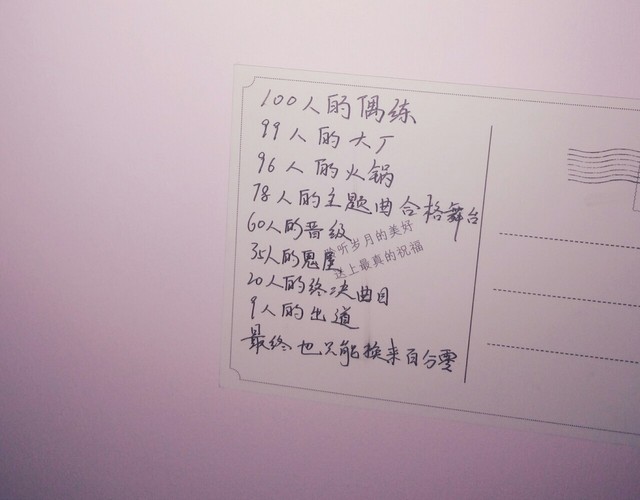 100人的偶练
99人的大厂
96人的火锅
78人的主题曲合格舞台
60人的晋级
35人的鬼屋
20人的终决曲目
9人的出道
最终也只能换来百分零
聆听岁月的美好
送上最真的祝福